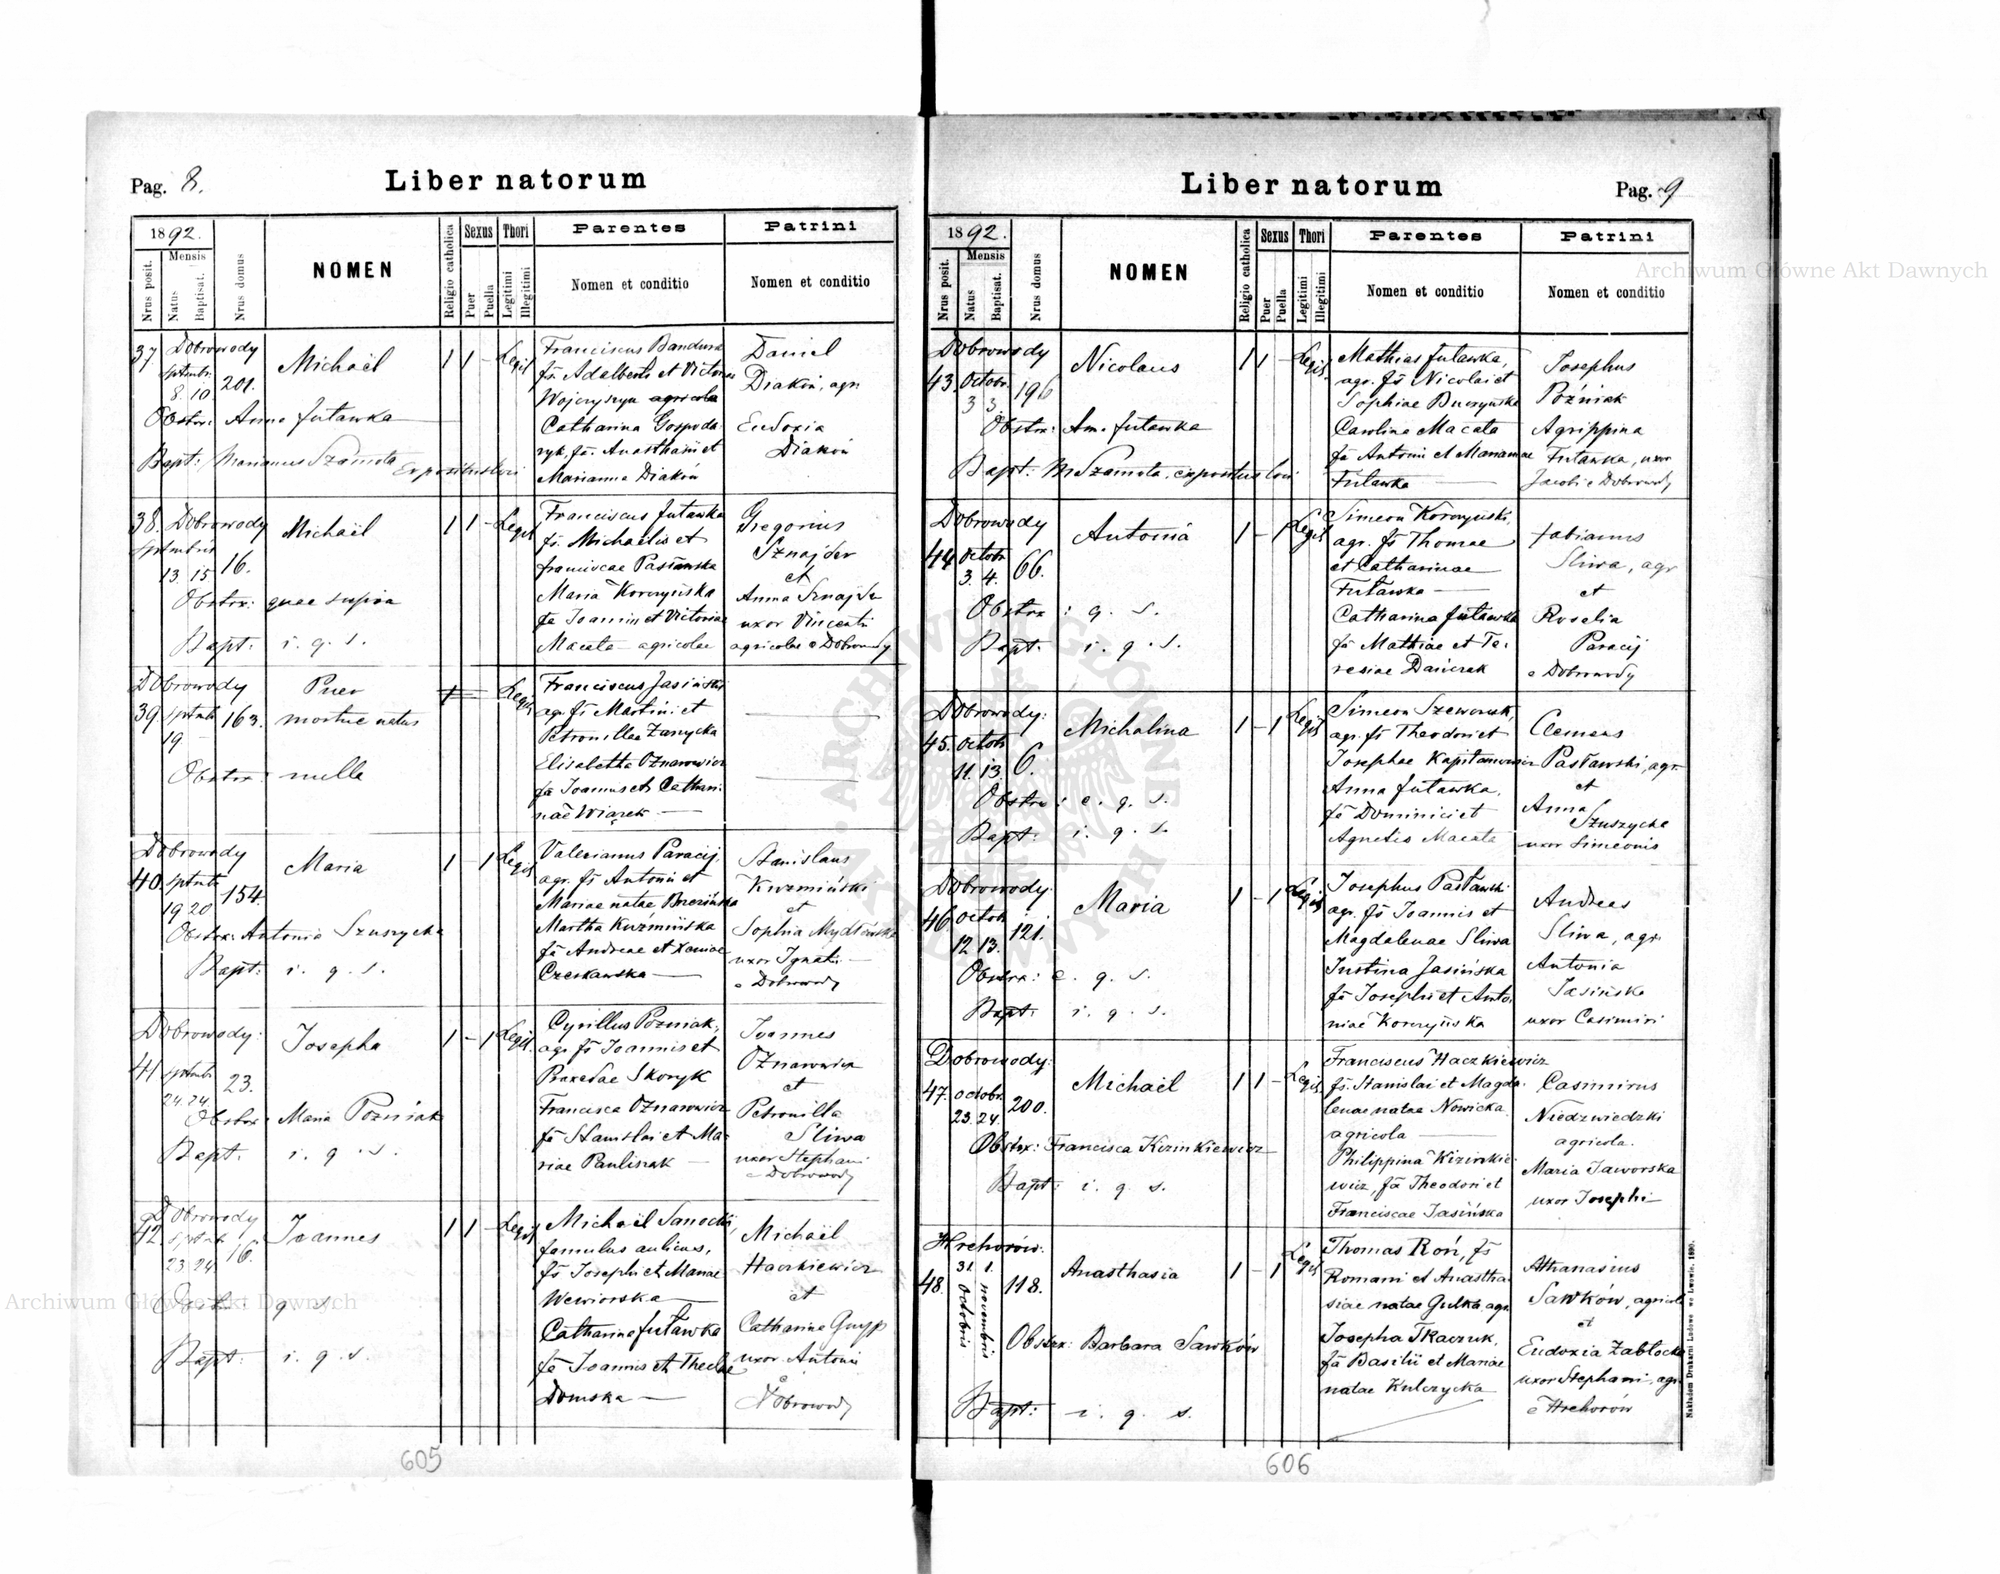 Pag. 8.
Liber natorum
1892.
Mensis
Nrus posit.
Natus
Baptisat.
Nrus domus
NOMEN
Religio catholica
Sexus
Puer
Puella
Thori
Legitimi
Illegitimi
Parentes
Nomen et conditio
Patrini
Nomen et conditio
37 Dobrowody
Sptmbr.
8. 10. 201.
Michaël
1 1 - Legit
Obstr: Anna Futawka
Bapt: Marianus Szamota Expositus loci
Franciscus Bandura
fs. Adalberti et Victoriae
Wojcryszyn agricola
Catharina Gospoda
ryk, fa. Anasthasii et
Marianna Diaków
Daniel
Diaków, agr.
Eudoxia
Diaków
38. Dobrowody
Sptmbris
13. 15. 16.
Michaël
1 1 - Legit
Obstr: quae supra
Bapt: i. q. s.
Franciscus Futawka
fs. Michaëlis et
Franciscae Pasławska
Maria Korczyńska
fa Joannis et Victoriae
Macata agricolae
Gregorius
Sznajder
et
Anna Sznajder
uxor Vincenti
agricolae e Dobrowody
Dobrowody
39. Sptmb 163.
19
Puer
mortue natus
Legit
Obstr: nulla
Franciscus Jasiński
agr. fs Martini et
Petronillae Zarycka
Elisabetha Oznarowicz
fa Joannis et Cathari
nae Wiązek
Dobrowody
40. Sptmb 154.
19 20
Maria
1 - 1 Legit
Obstr: Antonia Szuszycka
Bapt: i. q. s.
Valerianus Paracij,
agr. fs Antonii et
Mariae natae Brezińska
Martha Kuźmińska
fa Andreae et Xeniae
Czerkawska
Stanislaus
Kuzmiński
et
Sophia Mydlińska
uxor Ignati
e Dobrowody
Dobrowody:
41 Sptmb 23.
24. 24.
Josepha
1 - 1 Legit.
Obstr: Maria Pozniak
Bapt. i. q. s.
Cyrillus Pozniak,
agr. fs Joannis et
Praxedae Skoryk
Francisca Oznarowicz
fa Stanislai et Ma-
riae Pauliszak
Joannes
Oznarowicz
et
Petronilla
Sliwa
uxor Stephani
e Dobrowody
Dobrowody
42. Sptmb 16.
23 24
Joannes
1 1 - Legit
Obstr: q s
Bapt: i. q. s.
Michaël Sanocki,
famulus aulicus,
fs Josephi et Mariae
Wewiorska
Catharina Futawka
fa Joannis et Theclae
Domska
Michaël
Haczkiewicz
et
Catharina
uxor Antonii
e
Dobrowody
605
Liber natorum
Pag. 9
1892.
Mensis
Nrus posit.
Natus
Baptisat.
Nrus domus
NOMEN
Religio catholica
Sexus
Puer
Puella
Thori
Legitimi
Illegitimi
Parentes
Nomen et conditio
Patrini
Nomen et conditio
Dobrowody
43. Octobr. 196
3 3.
Nicolaus
1 1 - Legit.
Obstr: An. Futawka
Bapt: M Szamota, expositus loci
Mathias Futawka,
agr. fs Nicolai et
Sophiae Buczyńska
Carolina Macata
fa Antonii et Mariannae
Futawka
Josephus
Póżniak
Agrippina
Futawka, uxor
Jacobi e Dobrowody
Dobrowody
44 Octobr 66.
3. 4.
Antonia
1 - 1 Legit
Obstr: q. s.
Bapt. i. q. s.
Simeon Korczyński,
agr. fs Thomae
et Catharinae
Futawka
Catharina Futawka
fa Mathiae et Te-
resiae Dańczak
Fabianus
Sliwa, agr
et
Rosalia
Paracij
e Dobrowody
Dobrowody:
45. Octob 6.
11. 13.
Michalina
1 - 1 Legit
Obstr: e. q. s.
Bapt: i. q. s.
Simeon Szewczuk,
agr. fs Theodori et
Josephae Kapitanowicz
Anna Futawka,
fa Dominici et
Agnetis Macata
Clemens
Pasławski, agr.
et
Anna
Szuszycka
uxor Simeonis
Dobrowody
46. Octob 121.
12. 13.
Maria
1 - 1 Legit
Obstr: e. q. s.
Bapt: i. q. s.
Josephus Pasławski
agr. fs Joannis et
Magdalenae Sliwa
Justina Jasińska
fa Josephi et Anto-
niae Korczyńska
Andreas
Sliwa, agr.
Antonia
Jasińska
uxor Casimiri
Dobrowody:
47. Octobr. 200.
23. 24.
Michaël
1 1 - Legit.
Obstr: Francisca Kizinkiewicz
Bapt: i. q. s.
Franciscus Haczkiewicz
fs. Stanislai et Magda-
lenae natae Nowicka
agricola
Philippina Kizinkie
wicz, fa Theodori et
Franciscae Jasińska
Casimirus
Niedzwiedzki
agricola.
Maria Jaworska
uxor Josephi
Hrehorów:
48. 31. 1. 118.
Octobris
novembris
Anasthasia
1 - 1 Legit
Obstr: Barbara Sawków
Bapt: i. q. s.
Thomas Roń, fs
Romani et Anastha-
siae natae Gulka, agr.
Josepha Tkaczuk,
fa Basilii et Mariae
natae Kulczycka
Athanasius
Sawków, agricola
et
Eudoxia Zabłocka
uxor Stephani, agr.
e Hrehorów
Nakładem Drukarni Ludowej we Lwowie. 1890.
606
Archiwum Główne Akt Dawnych
Archiwum Główne Akt Dawnych
ARCHIWUM GŁÓWNE AKT DAWNYCH